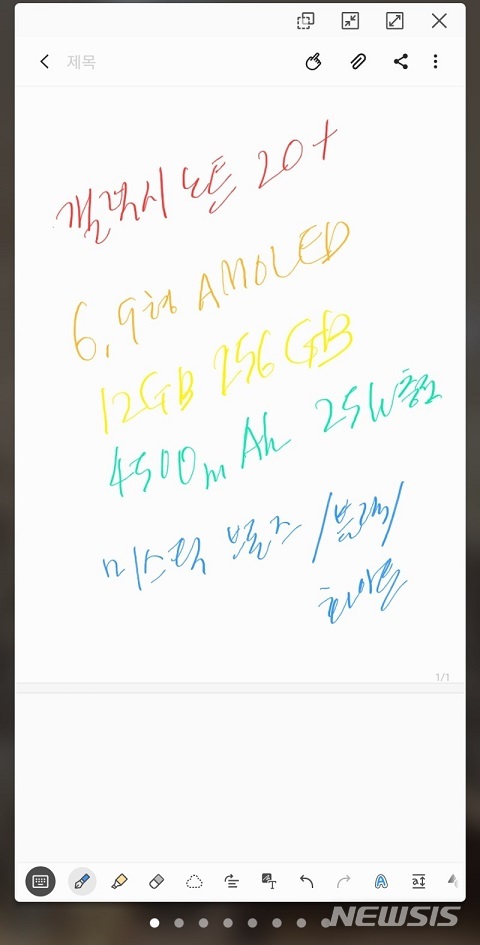 제목
갤럭시 노트 20+
6.9형 AMOLED
12GB 256GB
4500mAh 25W충전
미스틱 브론즈/블랙/
화이트
1/1
NEWSIS